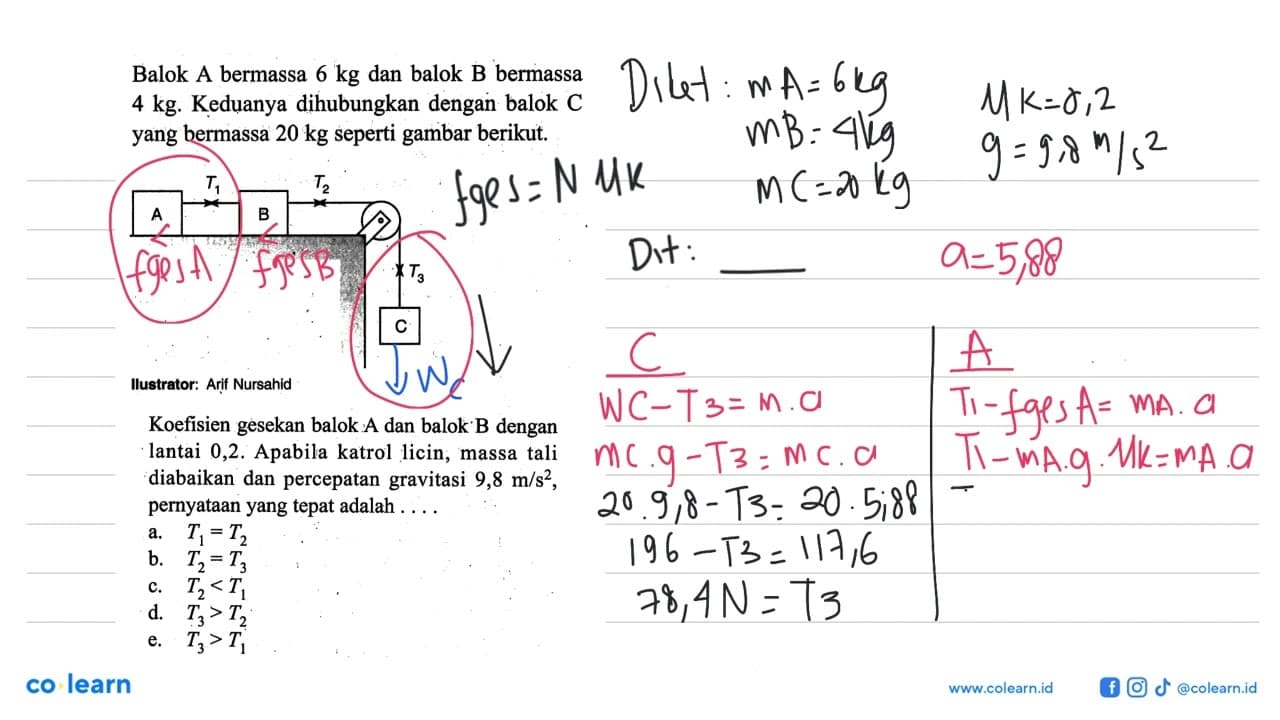 Balok A bermassa 6 kg dan balok B bermassa
4 kg. Keduanya dihubungkan dengan balok C
yang bermassa 20 kg seperti gambar berikut.
T₁
T₂
A
B
T₃
C
fgesA
fgesB
Wc
fges = N MK
Ilustrator: Arif Nursahid
Koefisien gesekan balok A dan balok B dengan
lantai 0,2. Apabila katrol licin, massa tali
diabaikan dan percepatan gravitasi 9,8 m/s²,
pernyataan yang tepat adalah . . . .
a. T₁ = T₂
b. T₂ = T₃
c. T₂ < T₁
d. T₃ > T₂
e. T₃ > T₁
Diket : mA = 6 kg
mB = 4 kg
MC = 20 kg
MK = 0,2
g = 9,8 m/s²
Dit :
a = 5,88
C
WC - T3 = m . a
mc . g - T3 = mc . a
20 . 9,8 - T3 = 20 . 5,88
196 - T3 = 117,6
78,4 N = T3
A
T1 - fges A = mA . a
T1 - mA . g . MK = mA . a
co learn
www.colearn.id
@colearn.id